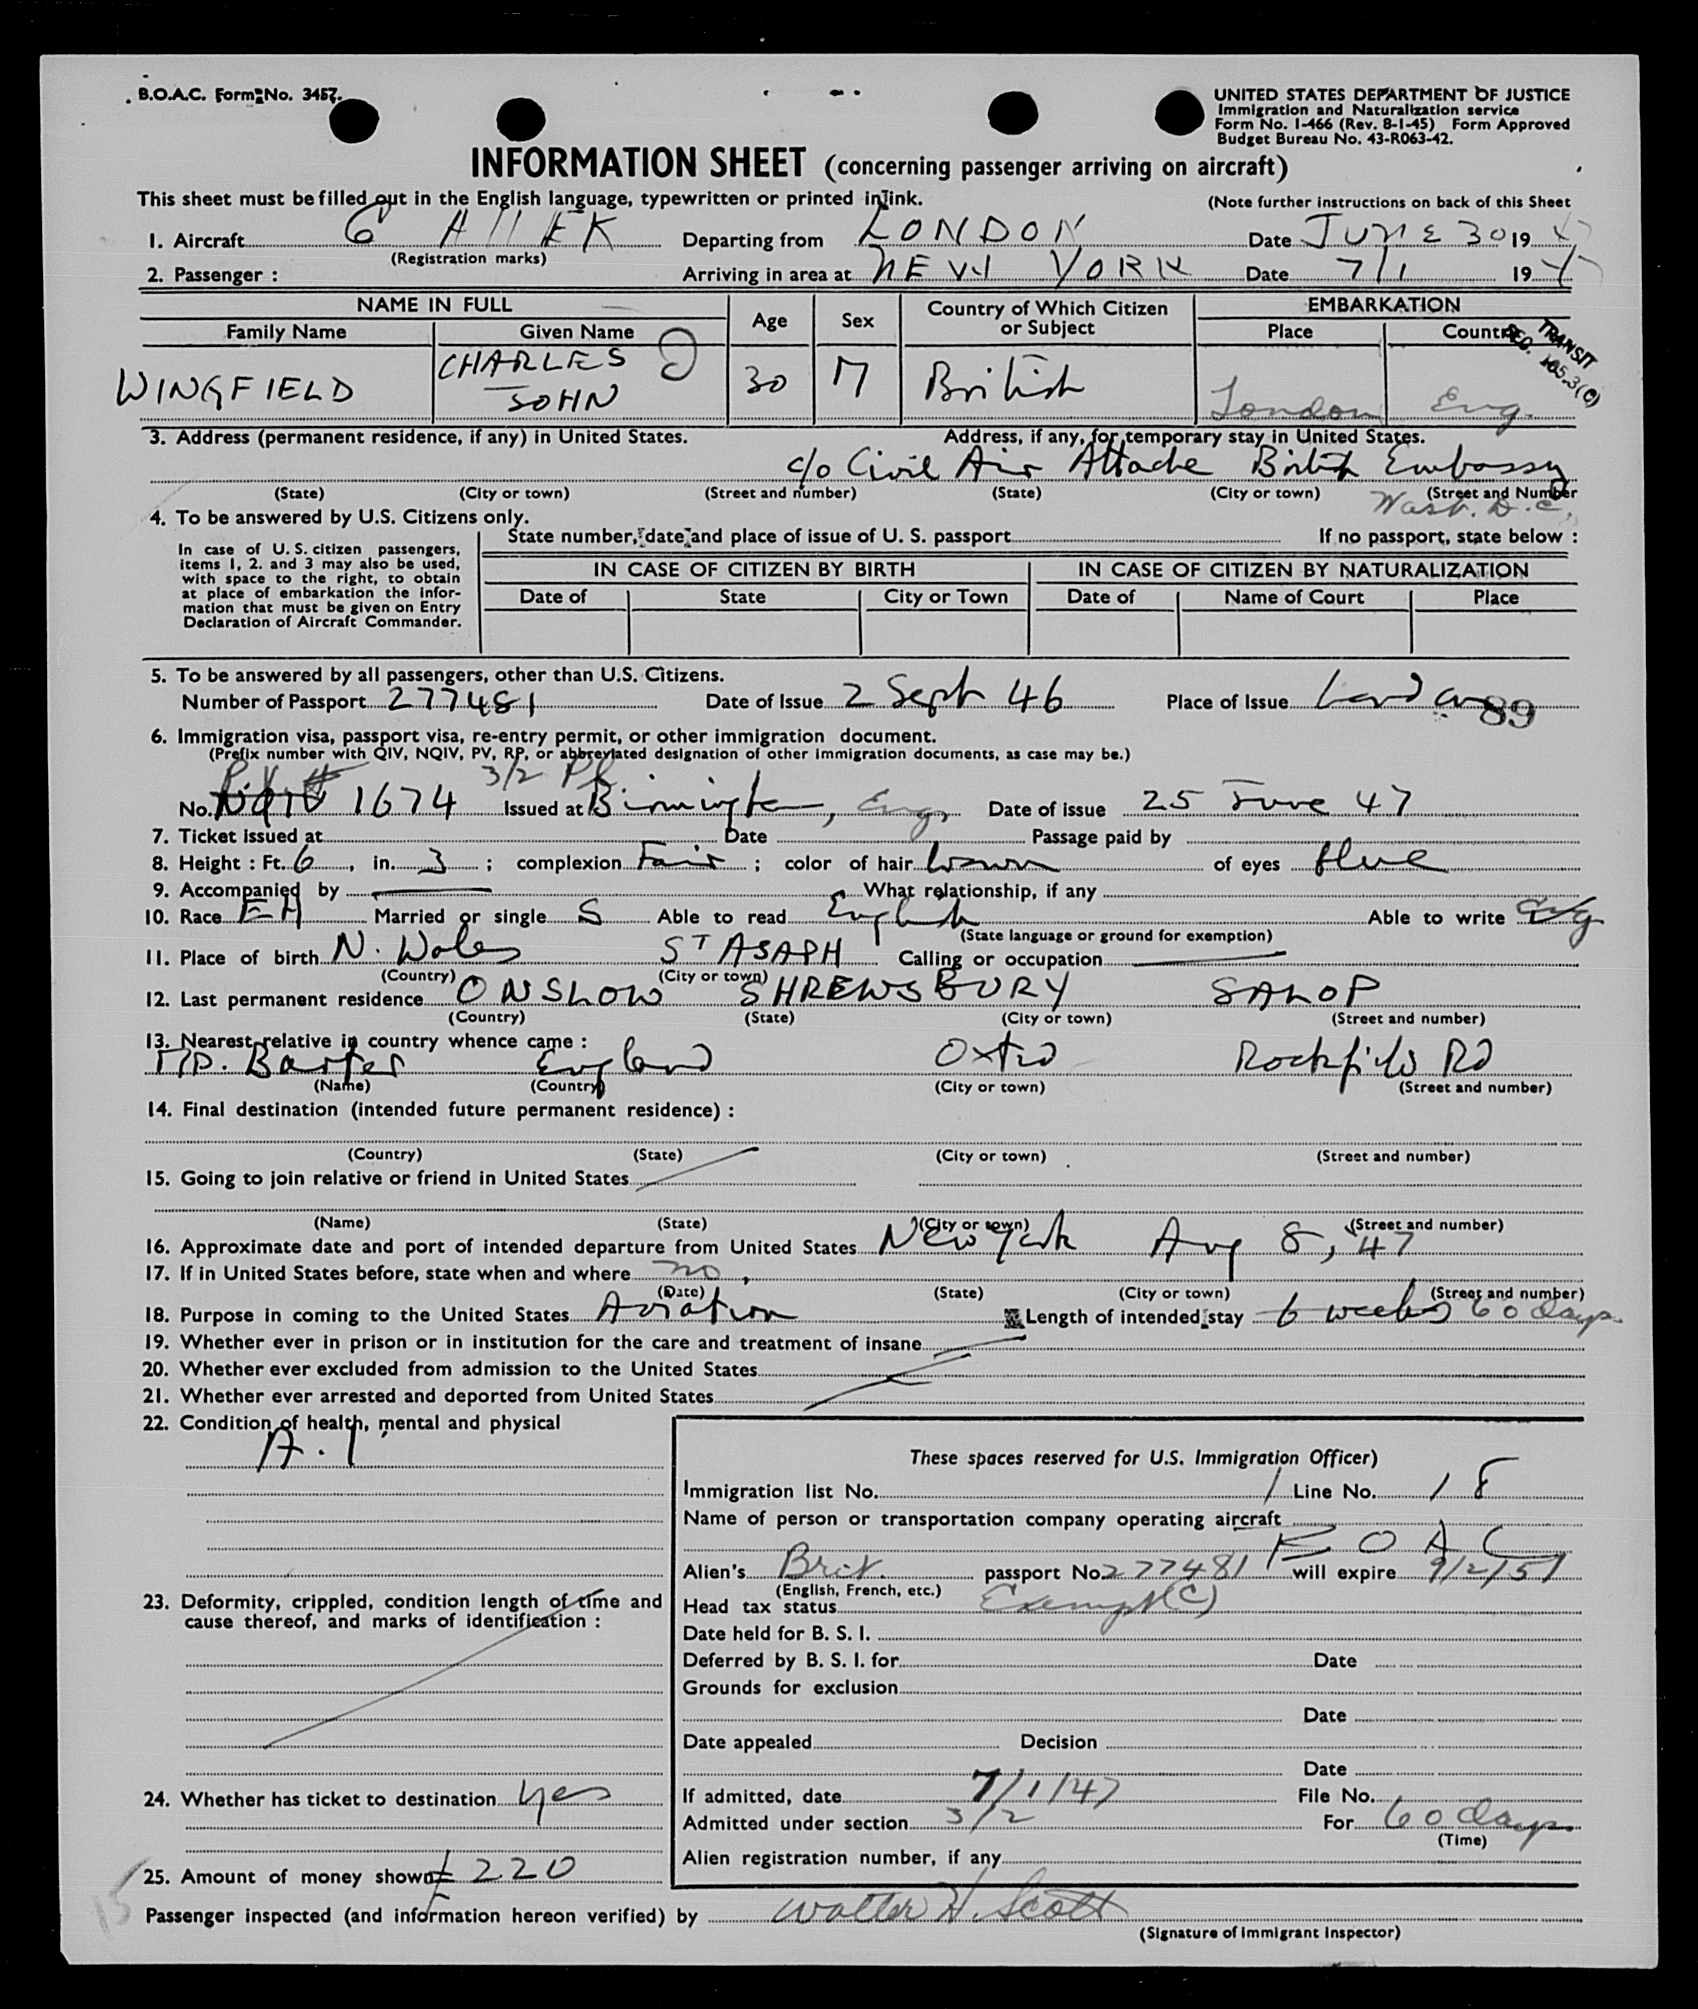 B.O.A.C. Form No. 3457.
UNITED STATES DEPARTMENT OF JUSTICE
Immigration and Naturalization service
Form No. I-466 (Rev. 8-1-45) Form Approved
Budget Bureau No. 43-R063-42.
INFORMATION SHEET (concerning passenger arriving on aircraft)
This sheet must be filled out in the English language, typewritten or printed in ink.
(Note further instructions on back of this Sheet
1. Aircraft G AHEK Departing from LONDON Date JUNE 30 19 47
(Registration marks)
2. Passenger : Arriving in area at NEW YORK Date 7/1 19 47
NAME IN FULL Age Sex Country of Which Citizen or Subject EMBARKATION
Family Name Given Name Place Country
TRANSIT
SEC. 105.3(C)
WINGFIELD CHARLES JOHN 30 M British London Eng.
3. Address (permanent residence, if any) in United States. Address, if any, for temporary stay in United States.
c/o Civil Air Attache British Embassy
(State) (City or town) (Street and number) (State) (City or town) (Street and Number
Wash. D.C.
4. To be answered by U.S. Citizens only.
State number, date and place of issue of U. S. passport If no passport, state below :
In case of U. S. citizen passengers,
items 1, 2. and 3 may also be used,
with space to the right, to obtain
at place of embarkation the infor-
mation that must be given on Entry
Declaration of Aircraft Commander.
IN CASE OF CITIZEN BY BIRTH IN CASE OF CITIZEN BY NATURALIZATION
Date of State City or Town Date of Name of Court Place
5. To be answered by all passengers, other than U.S. Citizens.
Number of Passport 277481 Date of Issue 2 Sept 46 Place of Issue London
89
6. Immigration visa, passport visa, re-entry permit, or other immigration document.
(Prefix number with QIV, NQIV, PV, RP, or abbreviated designation of other immigration documents, as case may be.)
P.V. # 3/2
No. NQIV 1674 Issued at Birmingham, Eng. Date of issue 25 June 47
7. Ticket issued at Date Passage paid by
8. Height : Ft. 6, in. 3 ; complexion Fair ; color of hair brown of eyes blue
9. Accompanied by What relationship, if any
10. Race Married or single S Able to read English Able to write Eng
(State language or ground for exemption)
11. Place of birth N. Wales ST ASAPH Calling or occupation
(Country) (City or town)
12. Last permanent residence ONSLOW SHREWSBURY SALOP
(Country) (State) (City or town) (Street and number)
13. Nearest relative in country whence came :
England Rockfield RD
(Name) (Country) (City or town) (Street and number)
14. Final destination (intended future permanent residence) :
(Country) (State) (City or town) (Street and number)
15. Going to join relative or friend in United States
(Name) (State) (City or town) (Street and number)
16. Approximate date and port of intended departure from United States New York Aug 8, 47
17. If in United States before, state when and where no
(Date) (State) (City or town) (Street and number)
18. Purpose in coming to the United States Aviation Length of intended stay 6 weeks 60 days.
19. Whether ever in prison or in institution for the care and treatment of insane
20. Whether ever excluded from admission to the United States
21. Whether ever arrested and deported from United States
22. Condition of health, mental and physical
A.1
These spaces reserved for U.S. Immigration Officer)
Immigration list No. 1 Line No. 18
Name of person or transportation company operating aircraft
B O A C
Alien's Brit. passport No. 277481 will expire 9/2/51
(English, French, etc.)
23. Deformity, crippled, condition length of time and
cause thereof, and marks of identification :
Head tax status Exempt (C)
Date held for B. S. I.
Deferred by B. S. I. for Date
Grounds for exclusion
Date
Date appealed Decision
Date
24. Whether has ticket to destination yes
If admitted, date 7/1/47 File No.
Admitted under section 3/2 For 60 days.
(Time)
Alien registration number, if any
25. Amount of money shown £ 220
15
Passenger inspected (and information hereon verified) by Walter H. Scott
(Signature of Immigrant Inspector)